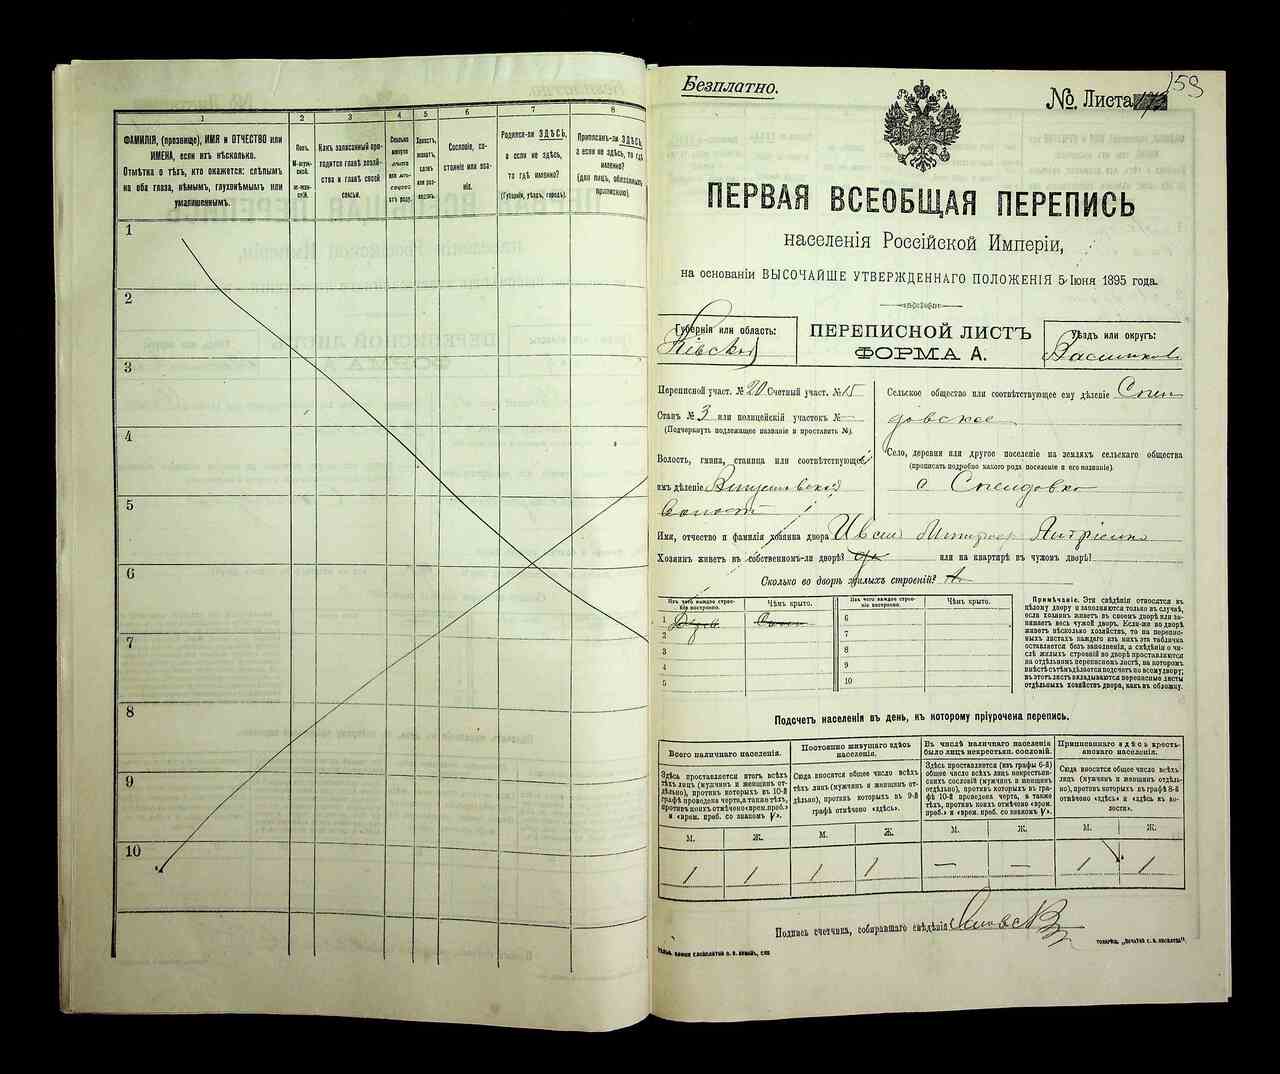 1 2 3 4 5 6 7 8
ФАМИЛІЯ, (прозвище), ИМЯ и ОТЧЕСТВО или
ИМЕНА, если ихъ нѣсколько.
Отмѣтка о тѣхъ, кто окажется: слѣпымъ
на оба глаза, нѣмымъ, глухонѣмымъ или
умалишеннымъ.
Полъ.
М-мужской.
Ж-женскій.
Какъ записанный приходится
главѣ хозяйства и главѣ своей
семьи.
Сколько
минуло
лѣтъ
или мѣсяцевъ
отъ роду.
Холостъ,
женатъ,
вдовъ
или разведенъ.
Сословіе, состояніе
или званіе.
Родился-ли ЗДѢСЬ,
а если не здѣсь,
то гдѣ именно?
(Губернія, уѣздъ, городъ).
Приписанъ-ли ЗДѢСЬ,
а если не здѣсь, то гдѣ
именно?
(для лицъ, обязанныхъ
припискою).
1
2
3
4
5
6
7
8
9
10
Безплатно.
№ Листа
159
ПЕРВАЯ ВСЕОБЩАЯ ПЕРЕПИСЬ
населенія Россійской Имперіи,
на основаніи ВЫСОЧАЙШЕ УТВЕРЖДЕННАГО ПОЛОЖЕНІЯ 5 Іюня 1895 года.
Губернія или область:
Кіевской
ПЕРЕПИСНОЙ ЛИСТЪ
ФОРМА А.
Уѣздъ или округъ:
Васильков
Переписной участ. № 20 Счетный участ. № 15
Станъ № 3 или полицейскій участокъ № —
(Подчеркнуть подлежащее названіе и проставить №).
Волость, гмина, станица или соотвѣтствующее
имъ дѣленіе
Волост
Сельское общество или соотвѣтствующее ему дѣленіе
довское
Село, деревня или другое поселеніе на земляхъ сельскаго общества
(прописать подробно какого рода поселеніе и его названіе).
с
Имя, отчество и фамилія хозяина двора
Хозяинъ живетъ въ собственномъ-ли дворѣ? да или на квартирѣ въ чужомъ дворѣ?
Сколько во дворѣ жилыхъ строеній? 1
Изъ чего каждое строеніе построено. Чѣмъ крыто. Изъ чего каждое строеніе построено. Чѣмъ крыто.
1 6
2 7
3 8
4 9
5 10
Примѣчаніе. Эти свѣдѣнія относятся къ
цѣлому двору и заполняются только въ случаѣ,
если хозяинъ живетъ въ своемъ дворѣ или занимаетъ
весь чужой дворъ. Если-же во дворѣ
живетъ нѣсколько хозяйствъ, то на переписныхъ
листахъ каждаго изъ нихъ эта табличка
оставляется безъ заполненія, а свѣдѣнія о числѣ
жилыхъ строеній во дворѣ проставляются
на отдѣльномъ переписномъ листѣ, на которомъ
вмѣстѣ съ тѣмъ дѣлается подсчетъ по всему двору;
въ этотъ листъ вкладываются переписные листы
отдѣльныхъ хозяйствъ двора, какъ въ обложку.
Подсчетъ населенія въ день, къ которому пріурочена перепись.
Всего наличнаго населенія.
Здѣсь проставляется итогъ всѣхъ
лицъ (мужчинъ и женщинъ отдѣльно),
противъ которыхъ въ 10-й
графѣ проведена черта, а также тѣхъ,
противъ коихъ отмѣчено «врем. преб.»
и «врем. преб. со знакомъ V».
Постоянно живущаго здѣсь
населенія.
Сюда вносится общее число всѣхъ
тѣхъ лицъ (мужчинъ и женщинъ отдѣльно),
противъ которыхъ въ 9-й
графѣ отмѣчено «здѣсь».
Въ числѣ наличнаго населенія
было лицъ некрестьян. сословій.
Здѣсь проставляется (изъ графы 6-й)
общее число всѣхъ лицъ некрестьянскихъ
сословій (мужчинъ и женщинъ
отдѣльно), противъ которыхъ въ графѣ
10-й проведена черта, а также
тѣхъ, противъ коихъ отмѣчено «врем.
преб.» и «врем. преб. со знакомъ V».
Приписаннаго здѣсь крестьянскаго
населенія.
Сюда вносится общее число всѣхъ
лицъ (мужчинъ и женщинъ отдѣльно),
противъ которыхъ въ графѣ 8-й
отмѣчено «здѣсь» и «здѣсь въ волости».
М. Ж. М. Ж. М. Ж. М. Ж.
1 1 1 1 — — 1 1
Подпись счетчика, собиравшаго свѣдѣнія